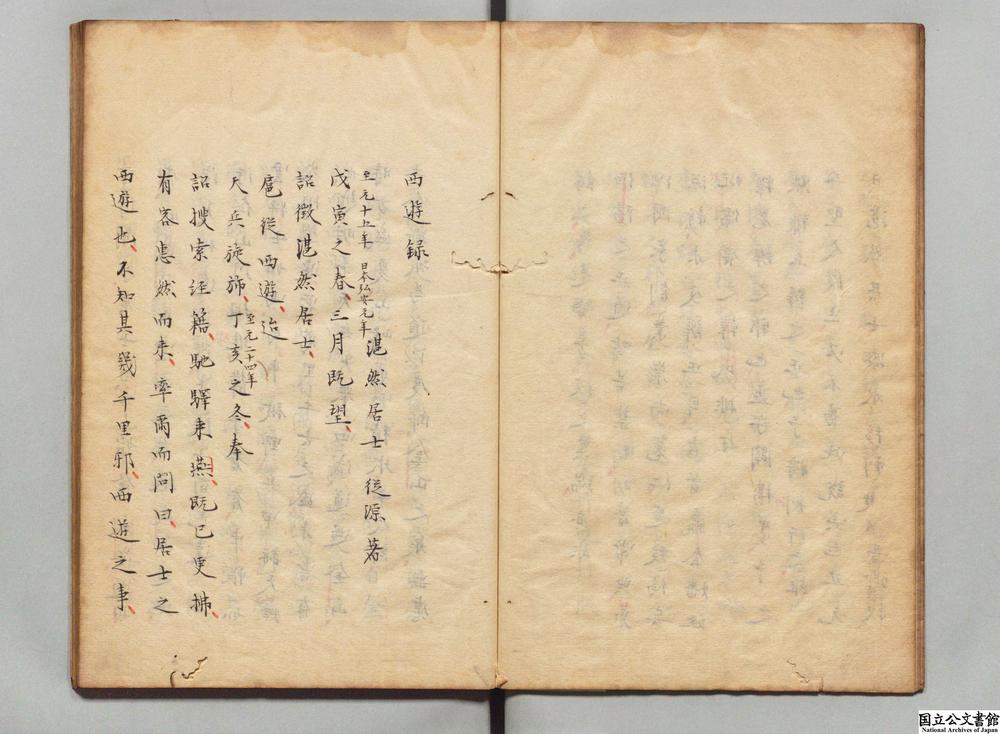 西遊録
湛然居士從源著
至元十五年 日本弘安元年
戊寅之春、三月既望、
詔徴湛然居士、
扈從西遊、迨
天兵旋旆、丁亥之冬、奉
至元二十四年
詔搜索經籍、馳驛来燕、既已更拂、
有客惠然而来、率爾而問曰、居士之
西遊也、不知其幾千里邪、西遊之事、
国立公文書館
National Archives of Japan